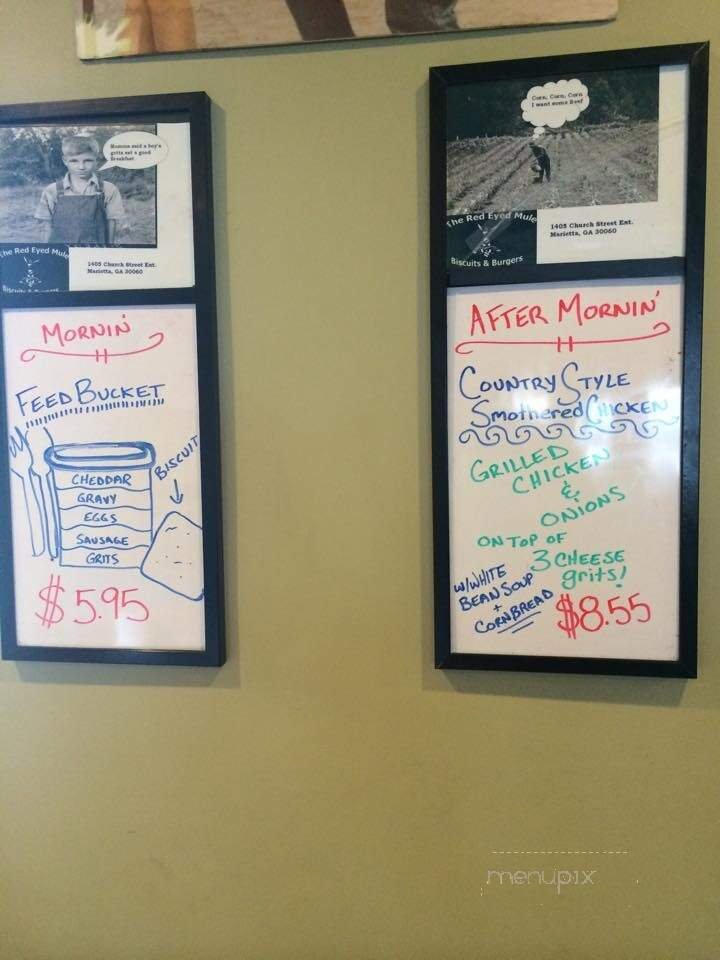 Momma said a boy's
grits eat a good
Breakfast
The Red Eyed Mule
1405 Church Street Ext.
Marietta, GA 30060
MORNIN'
FEED BUCKET
CHEDDAR
GRAVY
EGGS
SAUSAGE
GRITS
BISCUIT
$5.95
Corn, Corn, Corn
I want some Beef
The Red Eyed Mule
Biscuits & Burgers
1405 Church Street Ext.
Marietta, GA 30060
AFTER MORNIN'
COUNTRY STYLE
Smothered CHICKEN
GRILLED
CHICKEN
&
ONIONS
ON TOP OF
3 CHEESE
grits!
W/WHITE
BEAN SOUP
+
CORNBREAD
$8.55
menupix